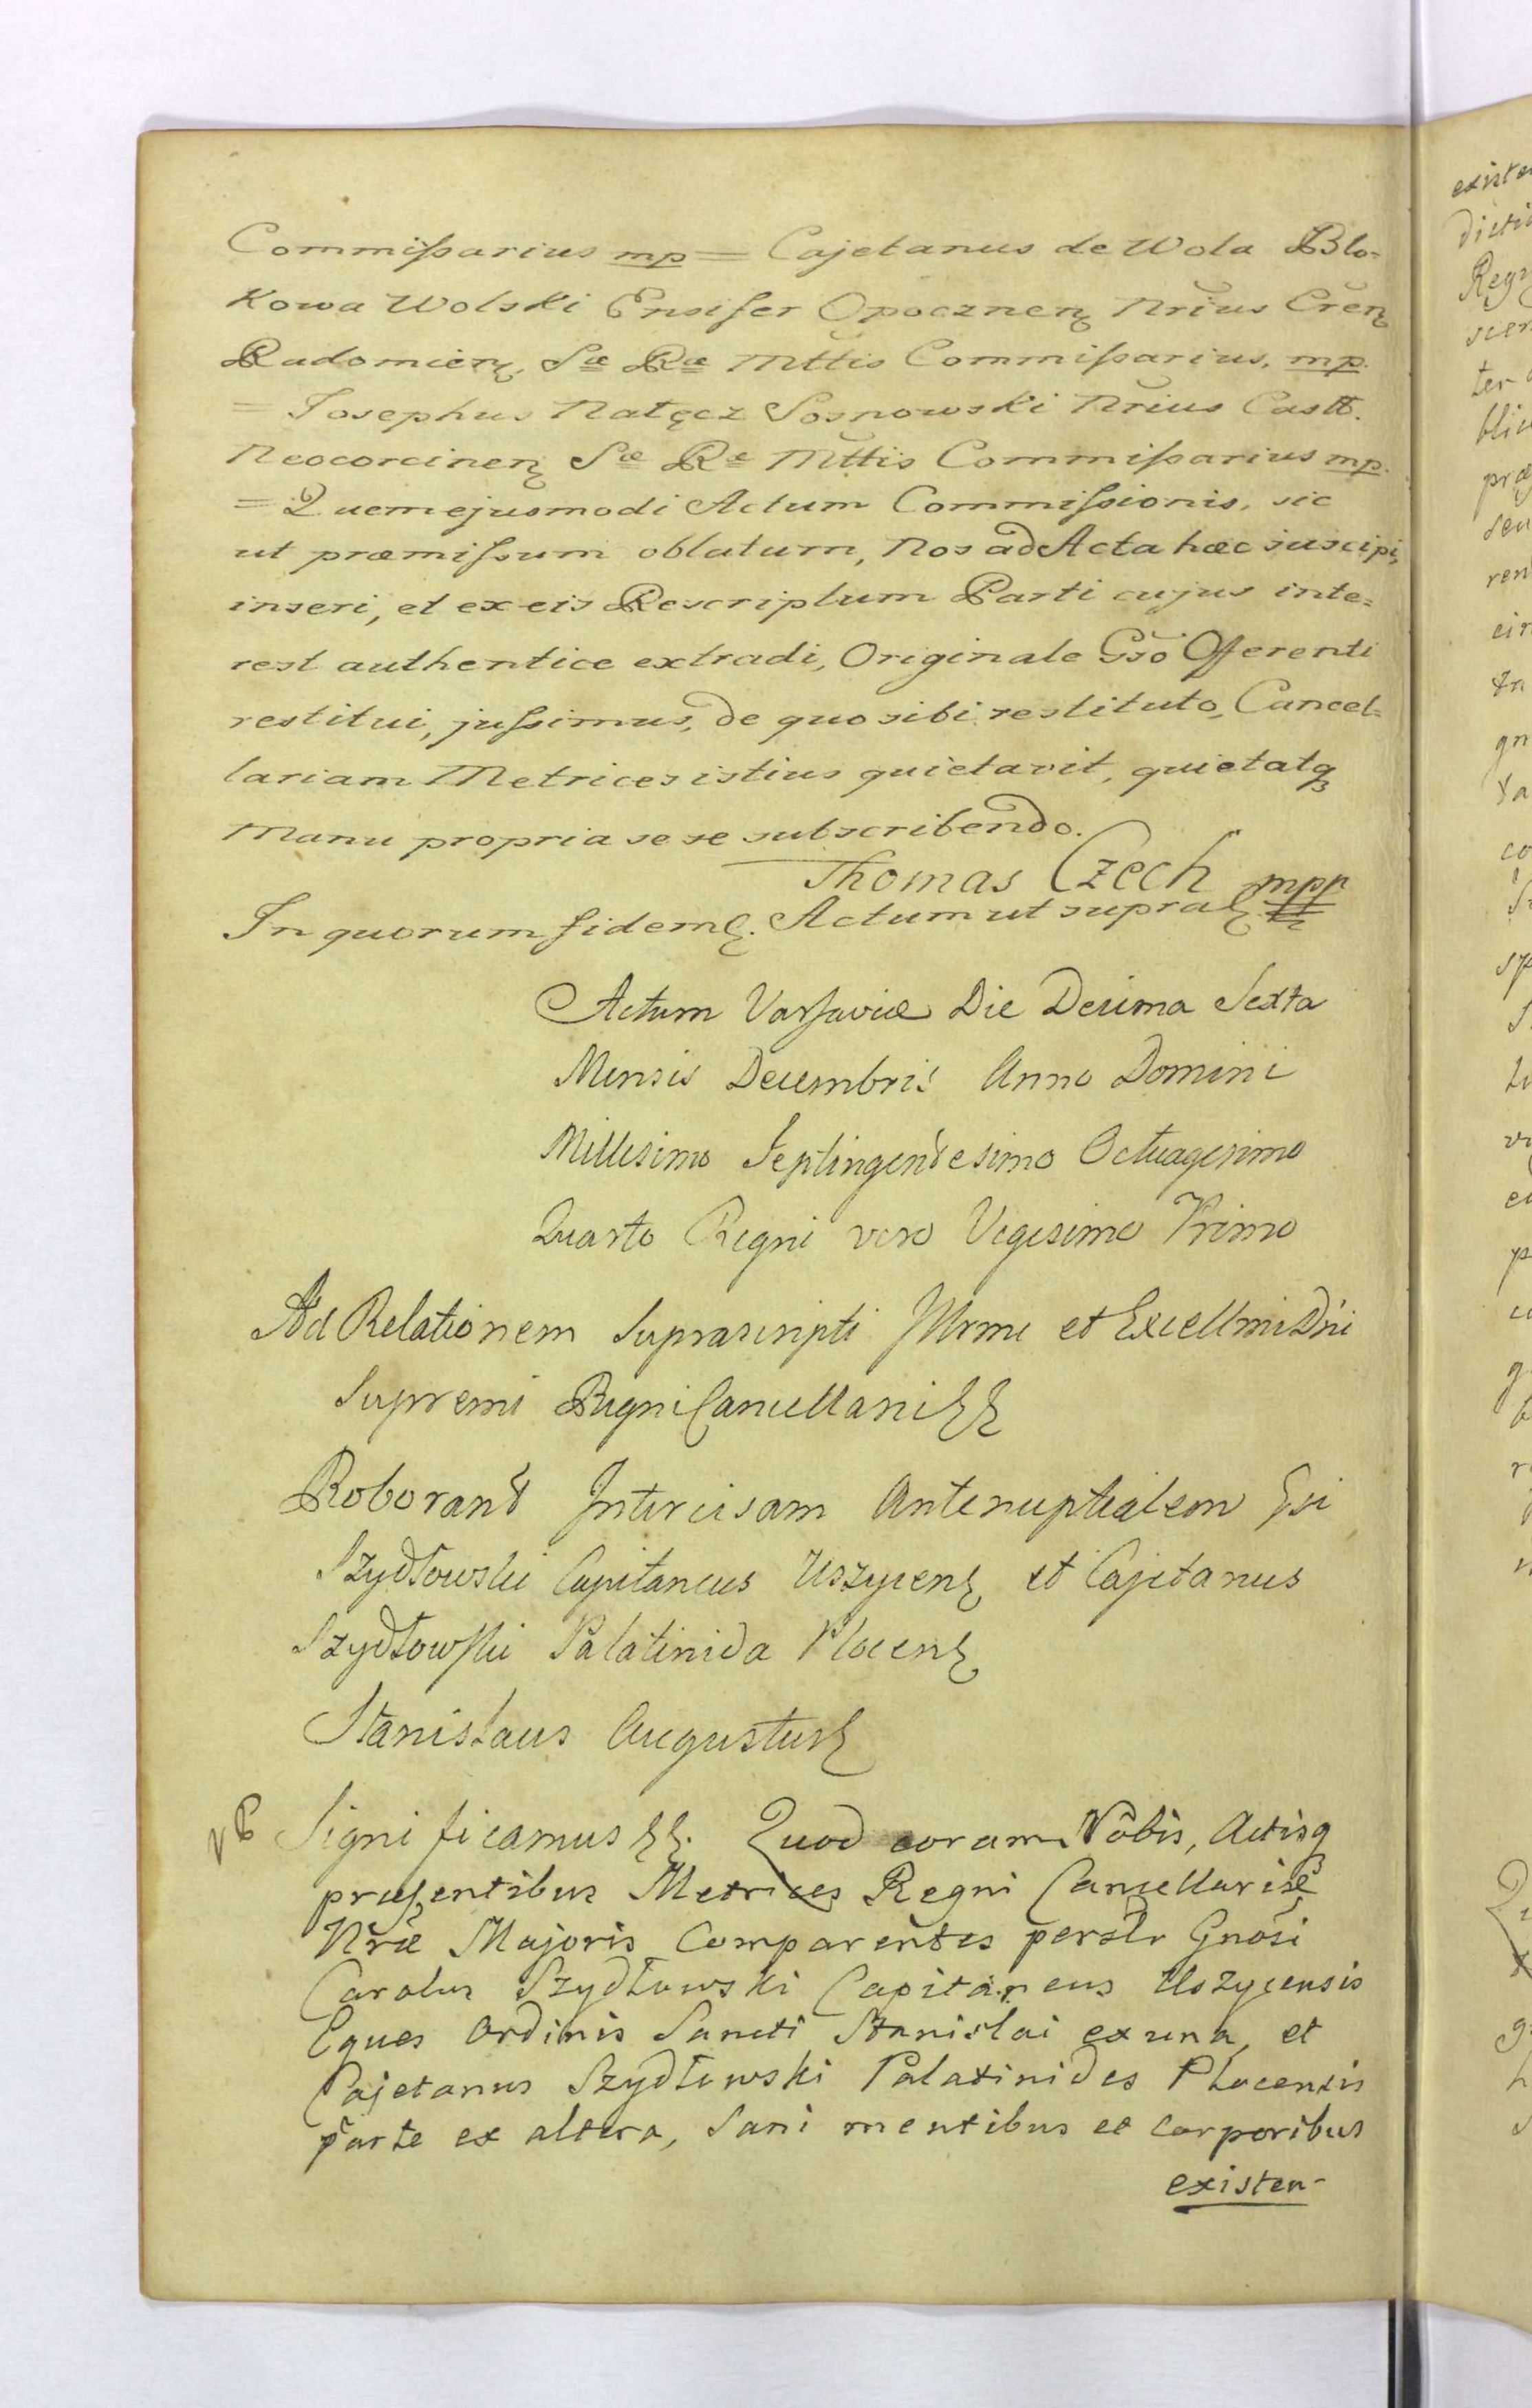 Commissarius mp = Cajetanus de Wola Blo=
kowa Wolski Ensifer Opocznen. Nrius Cren.
Radomien. Sæ Ræ Mttis Commissarius, mp.
= Josephus Natęcz Sosnowski Nrius Castr.
Neocorcinen. Sæ Ræ Mttis Commissarius mp.
= Quem ejusmodi Actum Commissionis, sic
ut præmissum oblatum, Nos ad Acta hæc suscipi,
inseri, et ex eis Rescriptum Parti cujus inte=
rest authentice extradi, Originale Gso Offerenti
restitui, jussimus, de quo sibi restituto, Cancel=
lariam Metrices istius quietavit, quietatq
Manu propria sese subscribendo.
Thomas Czech mpp
In quorum fidem. Actum ut supra
Actum Varsaviæ Die Decima Sexta
Mensis Decembris Anno Domini
Millesimo Septingentesimo Octuagesimo
Quarto Regni vero Vigesimo Primo
Ad Relationem Suprascripti Illrmi et Excellmi Dni
Supremi Regni Cancellarii
Roborant Intercisam Antenuptialem Gsi
Szydłowski Capitaneus Uszycen. et Cajetanus
Szydłowski Palatinida Plocen.
Stanislaus Augustus
Significamus. Quod coram Nobis, Actisq
præsentibus Metrices Regni Cancellariæ
Nræ Majoris Comparentes personlr Gnosi
Carolus Szydłowski Capitaneus Uszycensis
Eques Ordinis Sancti Stanislai ex una, et
Cajetanus Szydłowski Palatinides Plocensis
parte ex altera, Sani mentibus et Corporibus
existen-